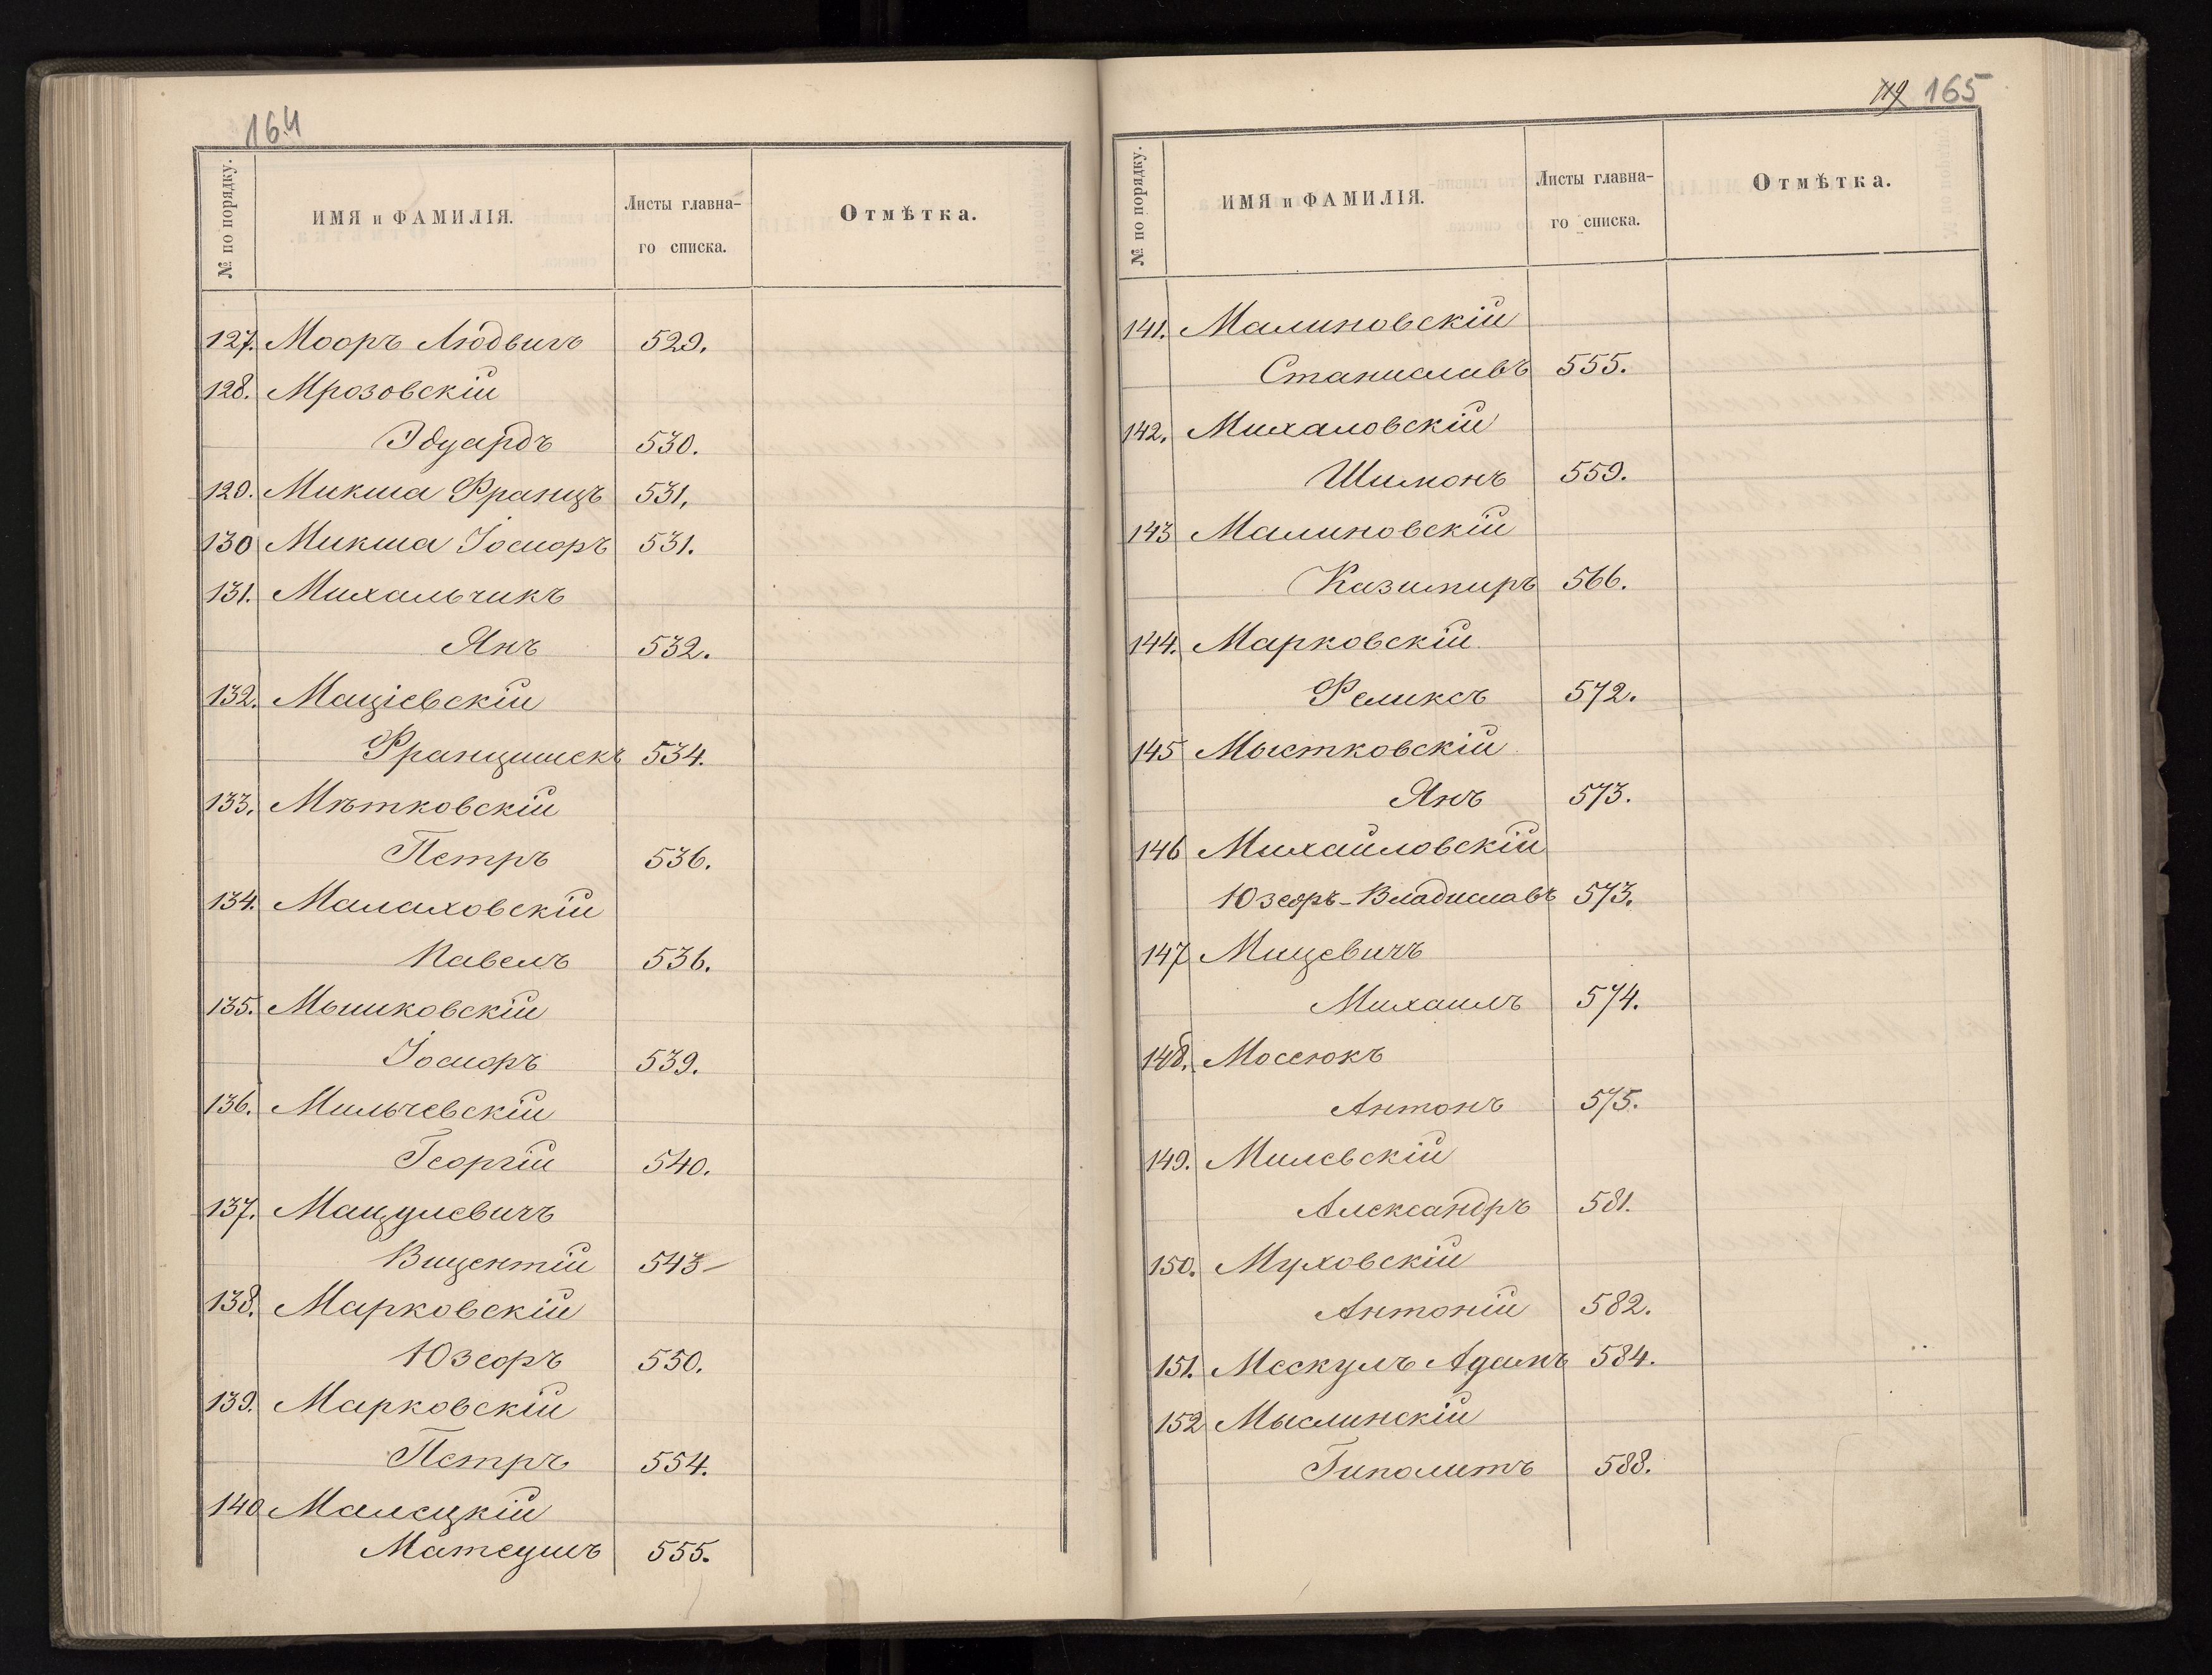 164
№ по порядку.
ИМЯ и ФАМИЛІЯ.
Листы главна-
го списка.
Отмѣтка.
127. Мооръ Людвигъ 529.
128. Мрозовскій
Эдуардъ 530.
129. Микша Францъ 531.
130 Микша Іосифъ 531.
131. Михальчикъ
Янъ 532.
132. Маціевскій
Францишекъ 534.
133. Мѣтковскій
Петръ 536.
134. Малаховскій
Павелъ 536.
135. Мышковскій
Іосифъ 539.
136. Мильчевскій
Георгій 540.
137. Мацулевичъ
Вицентій 543
138. Марковскій
Юзефъ 550.
139. Марковскій
Петръ 554.
140 Малецкій
Матеушъ 555.
119 165
№ по порядку.
ИМЯ и ФАМИЛІЯ.
Листы главна-
го списка.
Отмѣтка.
141. Малиновскій
Станиславъ 555.
142. Михаловскій
Шимонъ 559.
143 Малиновскій
Казимиръ 566.
144. Марковскій
Феликсъ 572.
145 Мыстковскій
Янъ 573.
146 Михайловскій
Юзефъ-Владиславъ 573.
147 Мицевичъ
Михаилъ 574.
148. Мосеюкъ
Антонъ 575.
149. Милевскій
Александръ 581.
150. Муховскій
Антоній 582.
151. Мескулъ Адамъ 584.
152 Мыслинскій
Гиполитъ 588.